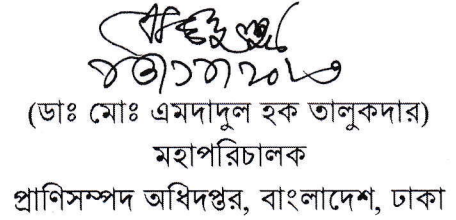 (ডাঃ মোঃ এমদাদুল হক তালুকদার)
মহাপরিচালক
প্রাণিসম্পদ অধিদপ্তর, বাংলাদেশ, ঢাকা